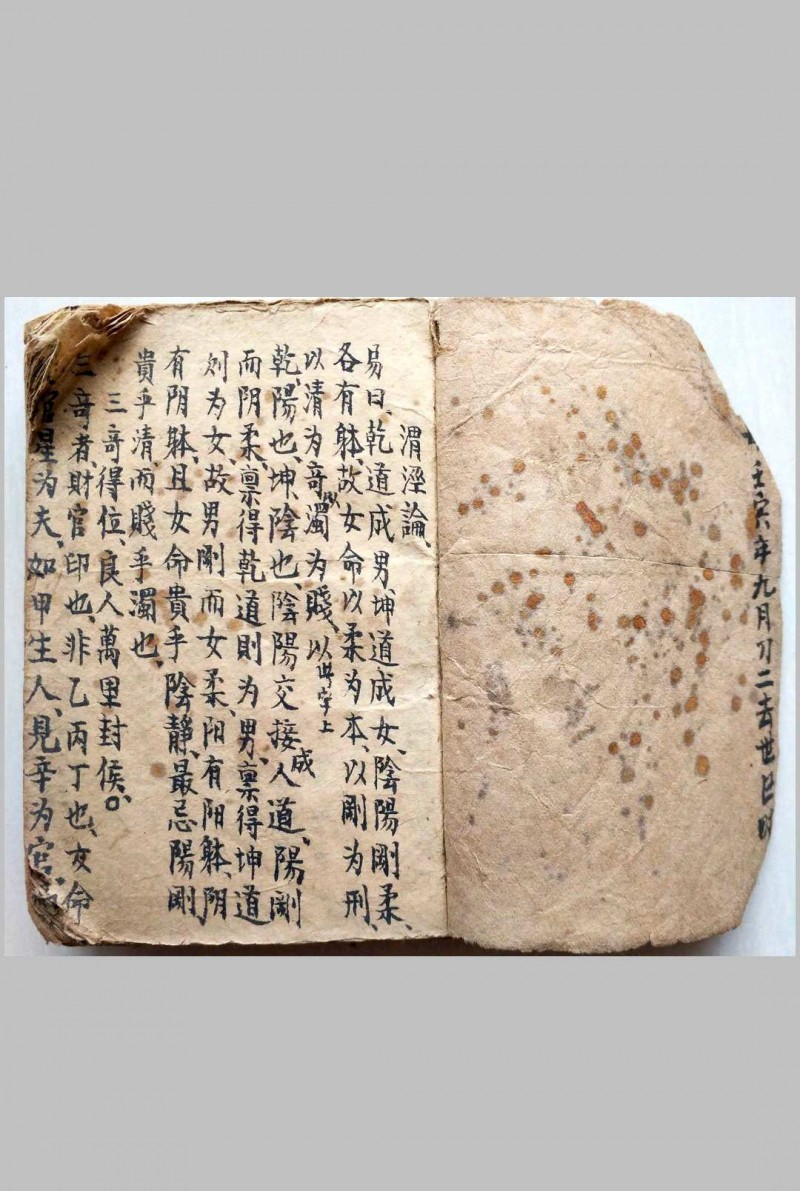 壬寅年九月刀二去世巳时
渭涇論、
易曰、乾道成男、坤道成女、陰陽剛柔、
各有躰、故女命以柔为本、以剛为刑、
以清为奇、以濁为賤、以此字上
乾、陽也、坤、陰也、陰陽交接成人道、陽剛
而阴柔、禀得乾道則为男、禀得坤道
则为女、故男剛而女柔、阳有阳躰、阴
有阴躰、且女命貴乎陰靜、最忌陽剛、
貴乎清、而賤乎濁也、
三奇得位、良人萬里封侯。
三奇者、財官印也、非乙丙丁也、女命
官星为夫、如甲生人、見辛为官、